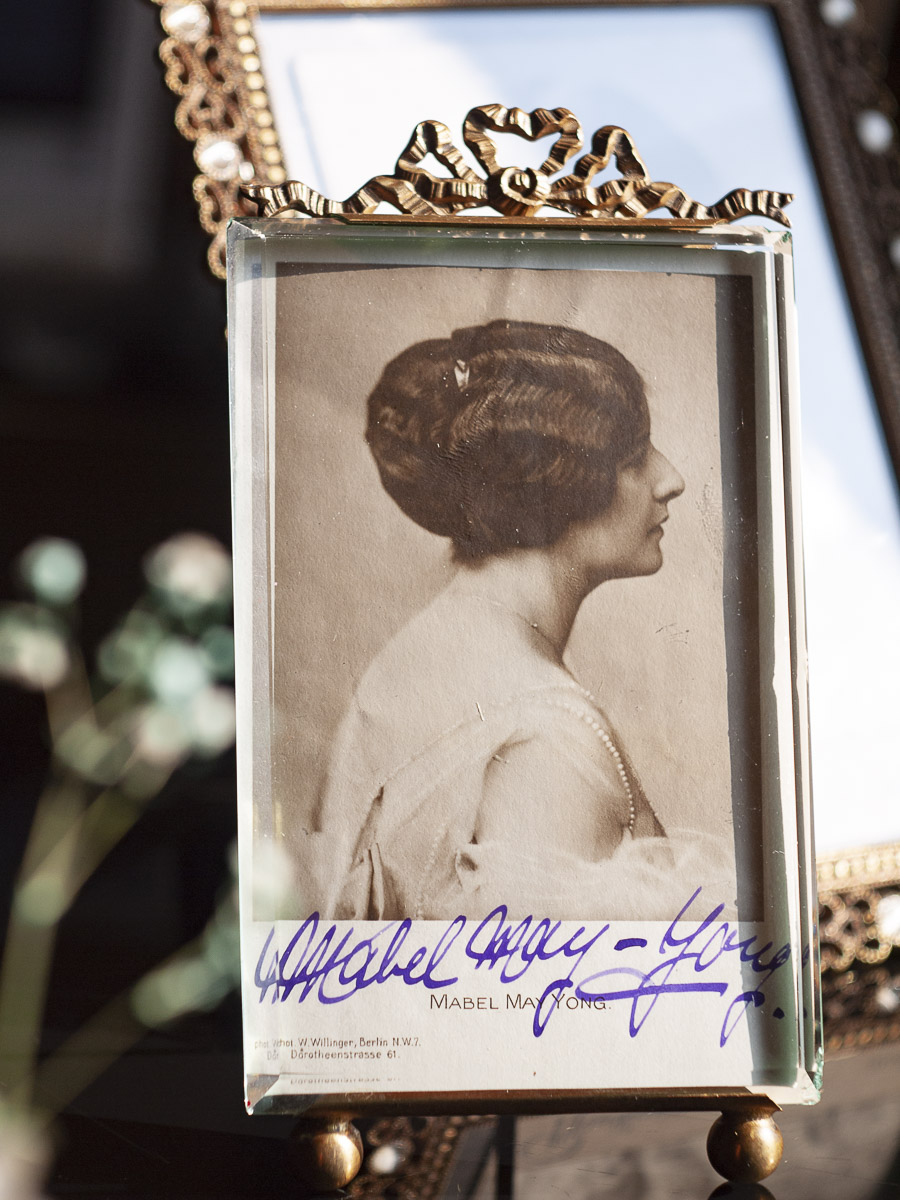 Mabel May-Yong.
MABEL MAY YONG.
phot. W. Willinger, Berlin N.W.7.
Dorotheenstrasse 61.